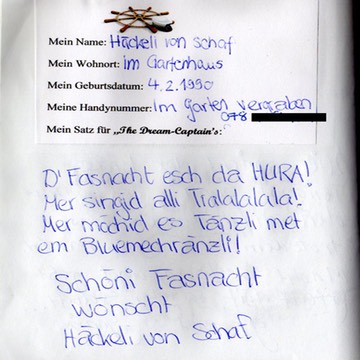 Mein Name: Häckeli von Schaf
Mein Wohnort: im Gartenhaus
Mein Geburtsdatum: 4.2.1990
Meine Handynummer: Im Garten vergraben
078
Mein Satz für „The Dream-Captain's:
D' Fasnacht esch da HURA!
Mer singid alli Tralalalala!
Mer möchid es Tänzli met
em Bluemechränzli!
Schöni Fasnacht
wönscht
Häckeli von Schaf